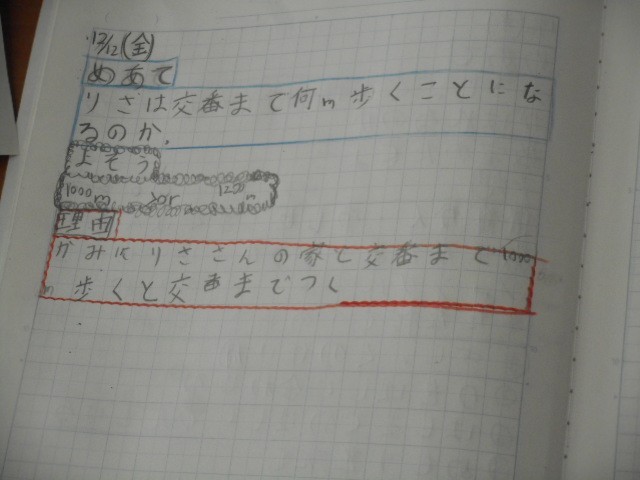 12/12(金)
めあて
りさは交番まで何m歩くことにな
るのか。
よそう
1000m or 1200m
理由
かみにりささんの家と交番まで1000
m歩くと交番までつく